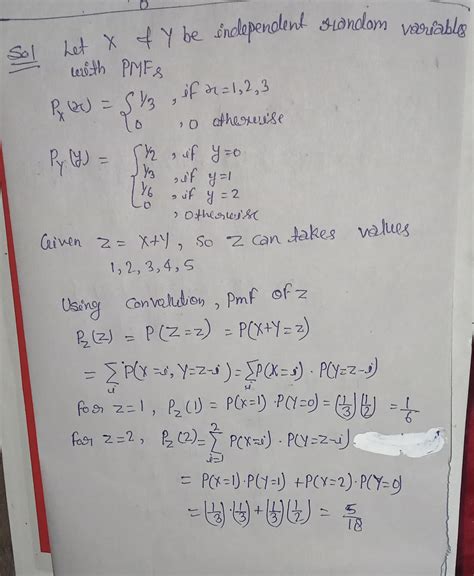 Sol Let X & Y be independent random variables
with PMFs
Px(x) = { 1/3 , if x=1,2,3
0 , 0 otherwise
Py(y) = { 1/2 , if y=0
1/3 , if y=1
1/6 , if y=2
0 , otherwise
Given Z = X+Y, so Z can takes values
1, 2, 3, 4, 5
Using Convolution, Pmf of Z
Pz(z) = P(Z=z) = P(X+Y=z)
= Σ P(X=i, Y=z-i) = Σ P(X=i) · P(Y=z-i)
for z=1, Pz(1) = P(X=1) · P(Y=0) = (1/3)(1/2) = 1/6
for z=2, Pz(2) = Σ i=1 2 P(X=i) · P(Y=z-i)
= P(X=1) · P(Y=1) + P(X=2) · P(Y=0)
= (1/3) · (1/3) + (1/3)(1/2) = 5/18